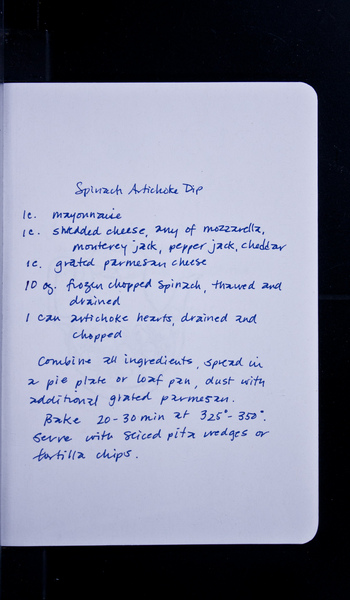 Spinach Artichoke Dip
1c. mayonnaise
1c. shredded cheese, any of mozzarella,
monterey jack, pepper jack, cheddar
1c. grated parmesan cheese
10 oz. frozen chopped spinach, thawed and
drained
1 can artichoke hearts, drained and
chopped
Combine all ingredients, spread in
a pie plate or loaf pan, dust with
additional grated parmesan.
Bake 20-30 min at 325°-350°.
Serve with sliced pita wedges or
tortilla chips.